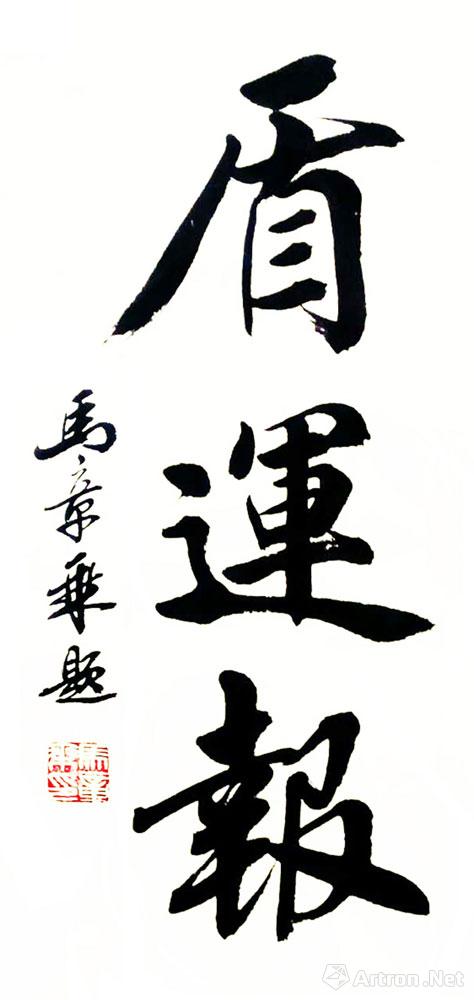 盾運報
馬章乘題
Artron.Net